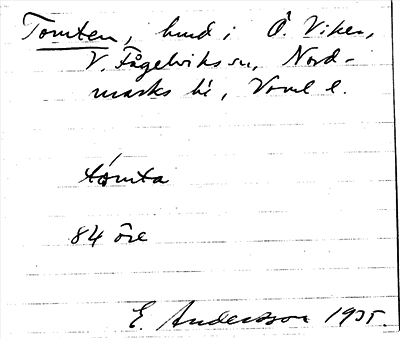 Tomten, hmd i Ö. Viker,
V. Fågelviks sn, Nord-
marks hd, Vrml l.
tómta
84 öre
E. Andersson 1935.